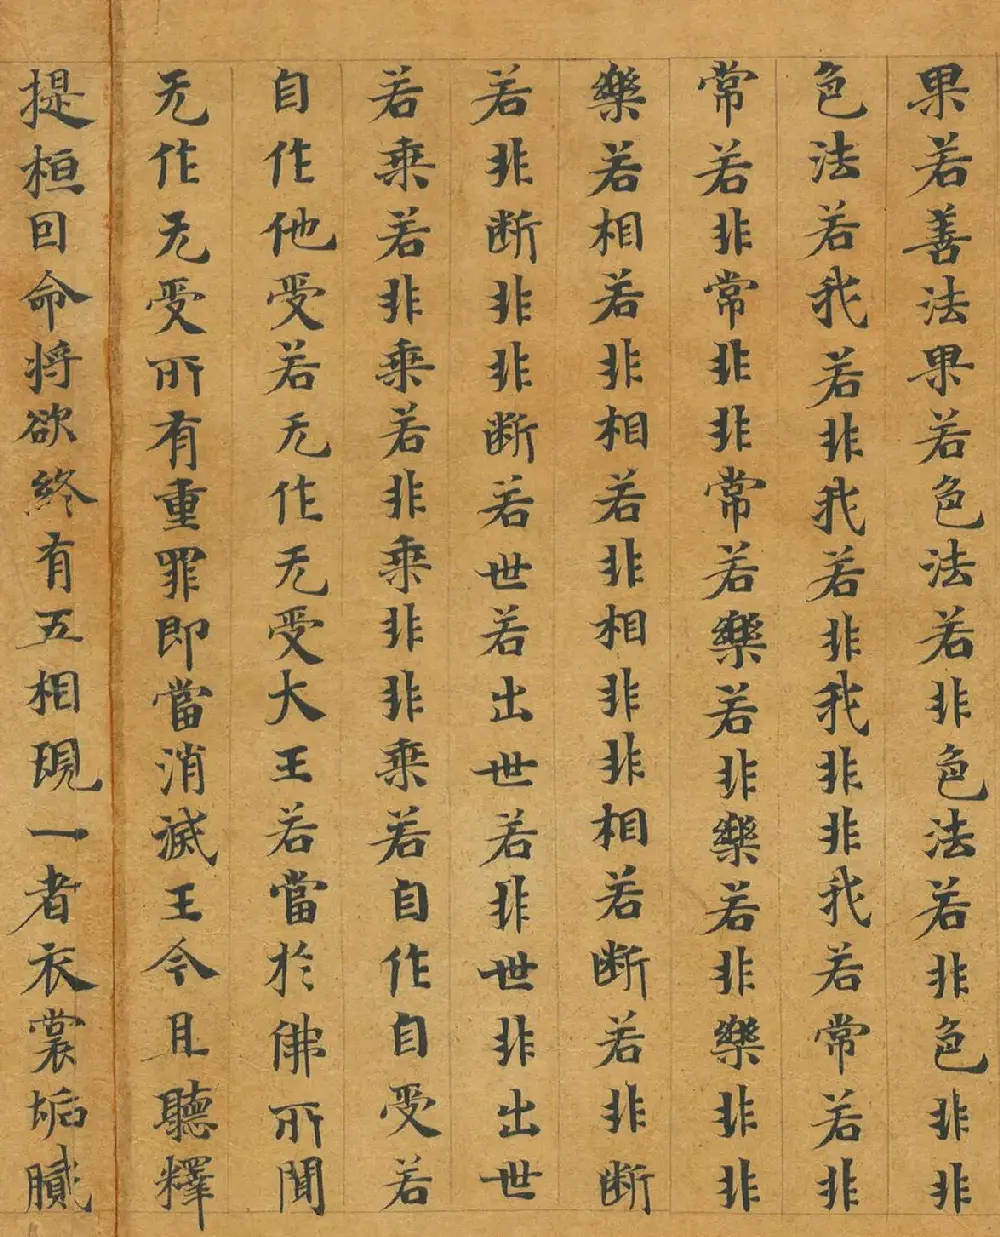 果若善法果若色法若非色法若非色非非
色法若我若非我若非我非非我若常若非
常若非常非非常若樂若非樂若非樂非非
樂若相若非相若非相非非相若断若非断
若非断非非断若世若出世若非世非出世
若乗若非乗若非乗非非乗若自作自受若
自作他受若无作无受大王若當於佛所聞
无作无受所有重罪即當消滅王今且聽釋
提桓囙命将欲終有五相現一者衣裳垢膩